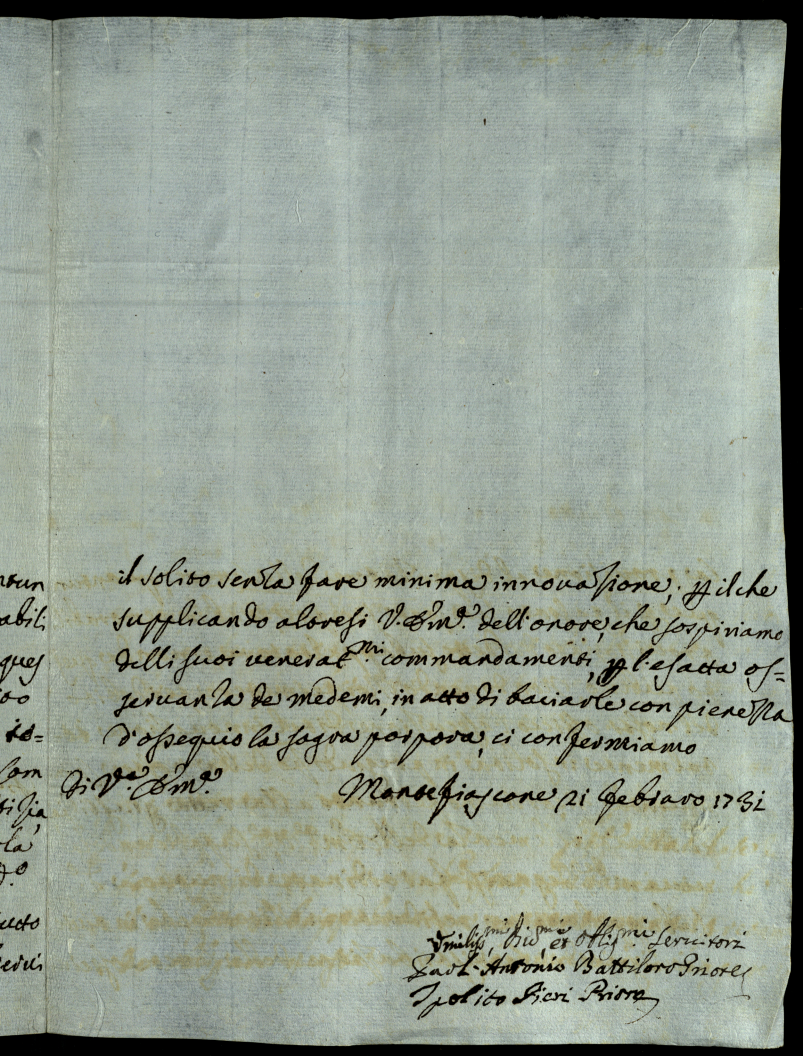 ntun
abili
ques
to=
Com
la
utto
il solito senza fare minima innovazione; p il che
supplicando altresi V. Em.ª dell'onore, che sospiriamo
delli suoi venerat.mi commandamenti, p l'esatta os=
servanza de medemi, in atto di baciarle con pienezza
d'ossequio la sagra porpora, ci confermiamo
Di V.ra Em.ª Montefiascone 21 Febraro 1731
Umiliss.mi, Div.mi et Oblig.mi Servitori
Paol' Antonio Battiloro Priore
Ipolito Pieri Priore